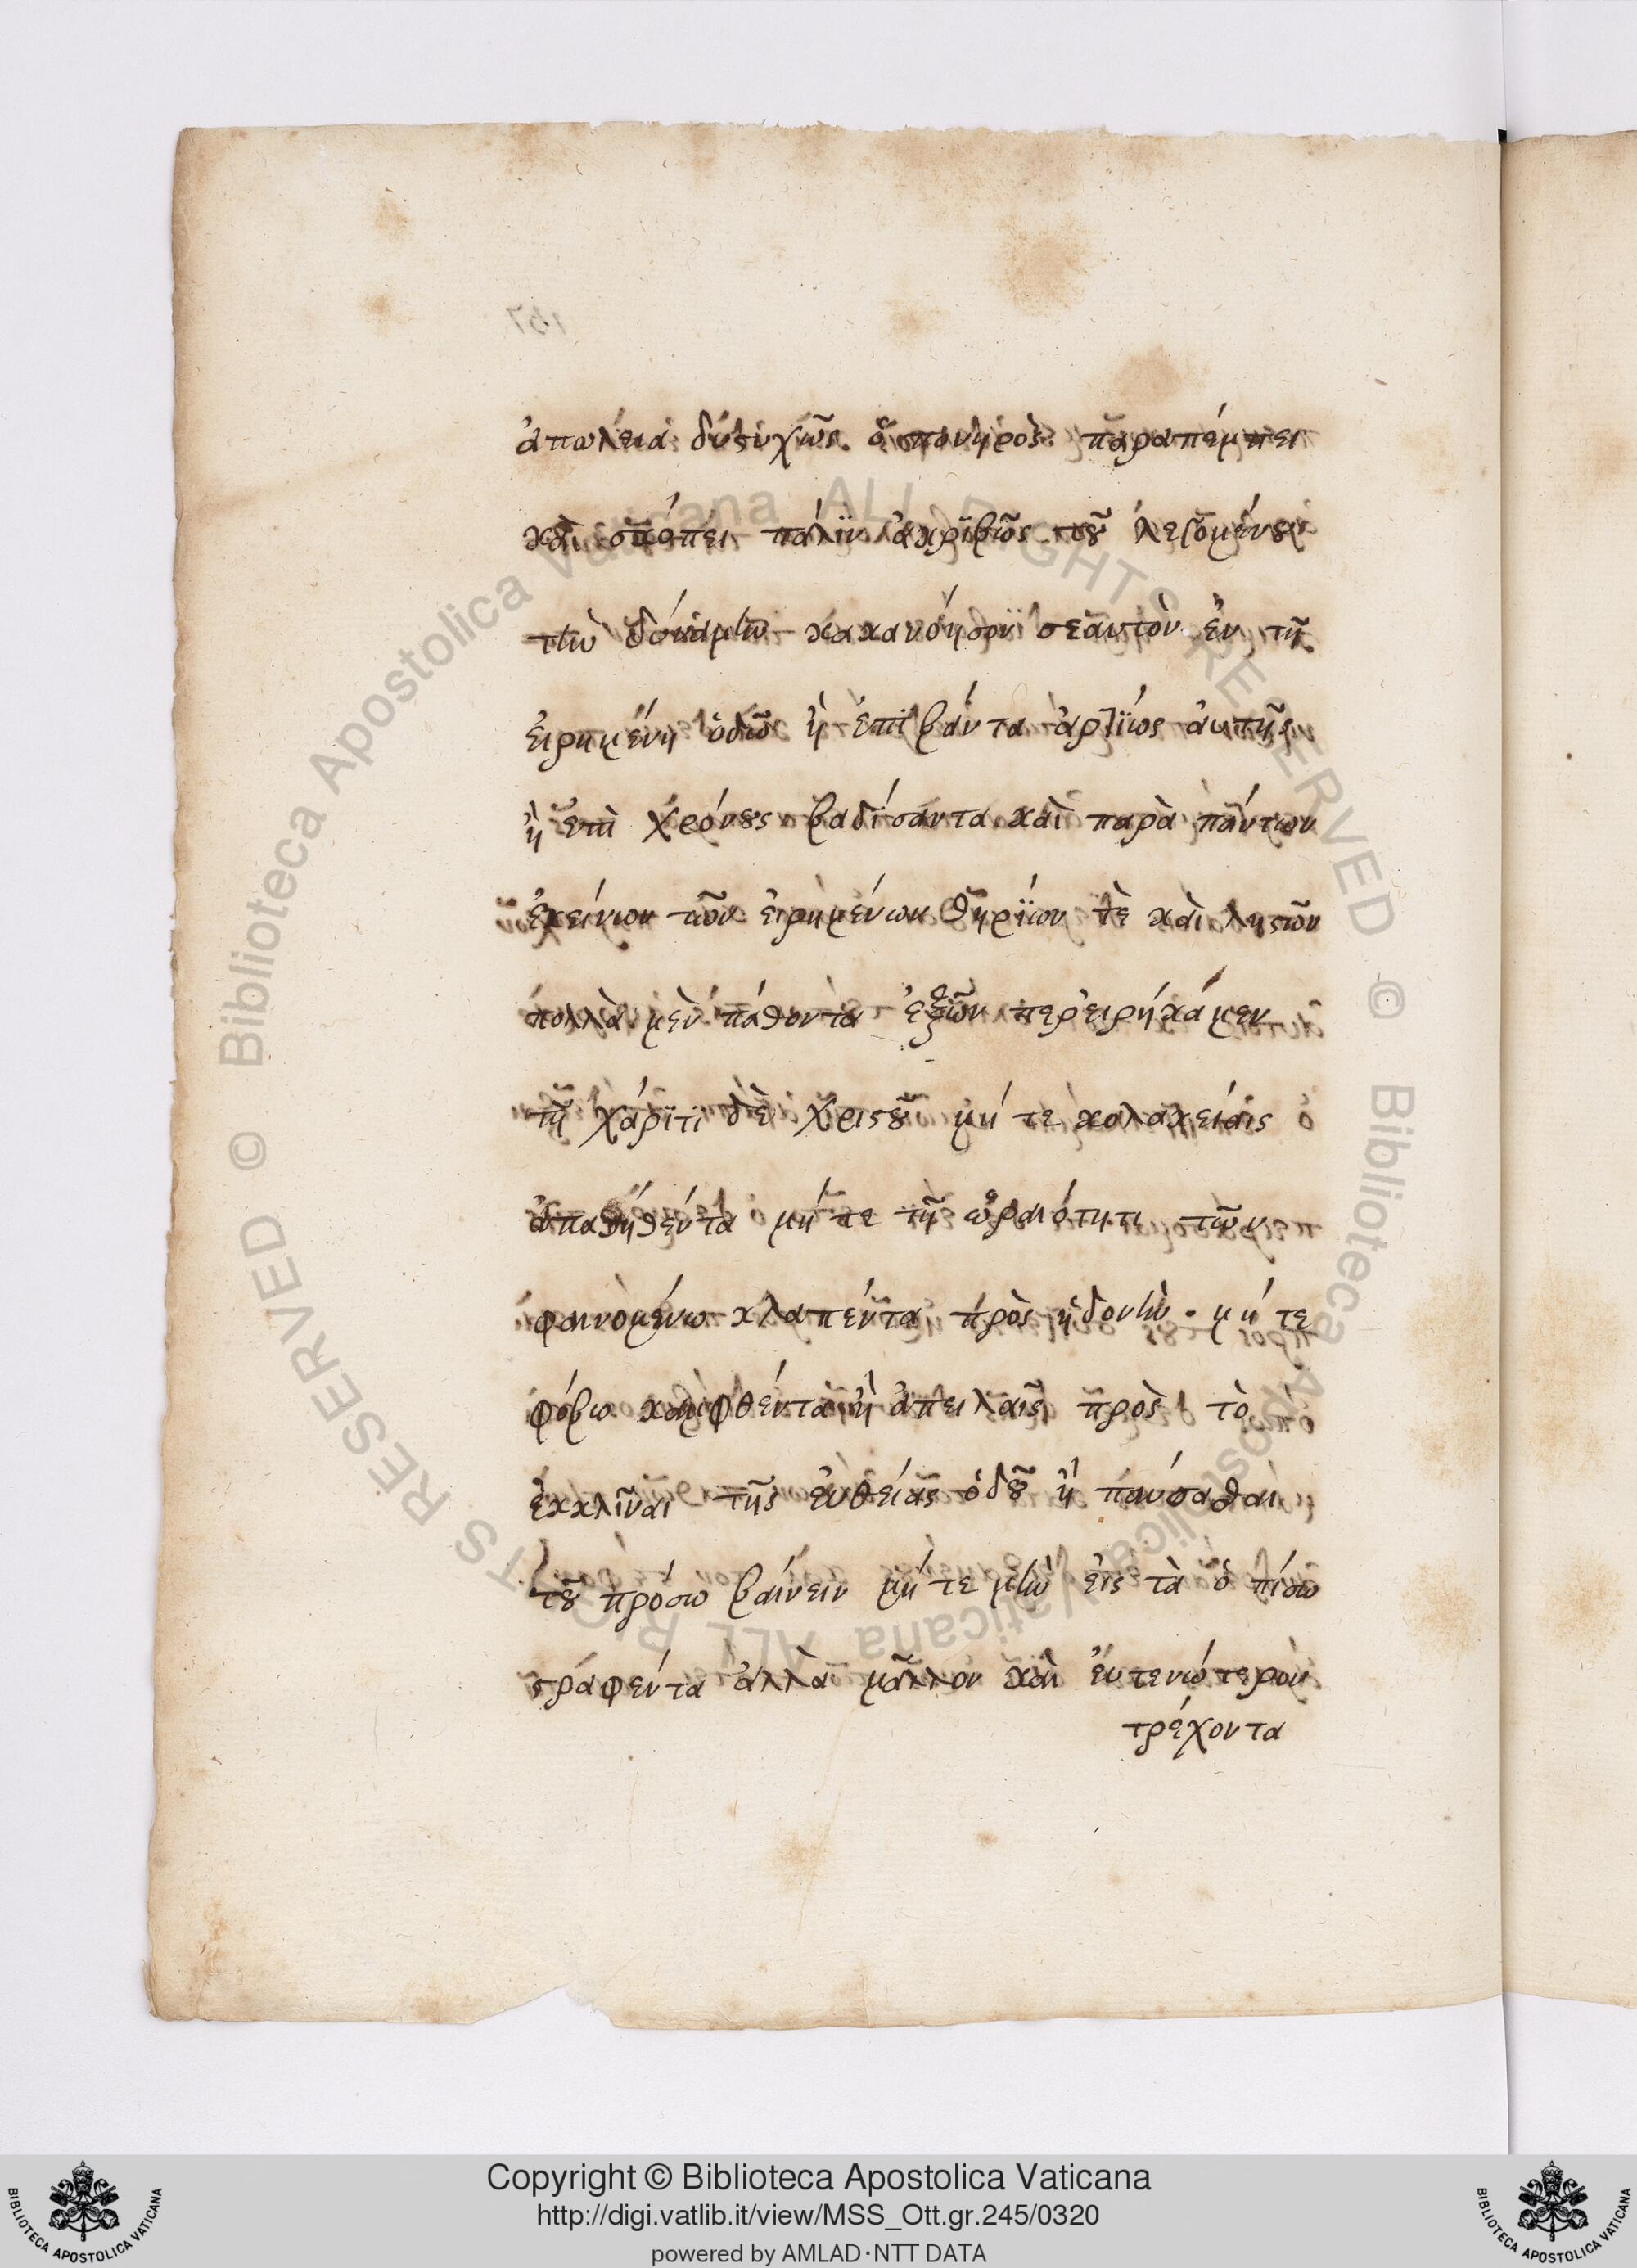 ἀπωλεία δυστυχῶς ὁ πονηρὸς παραπέμπει
καὶ σκόπει πάλιν ἀκριβῶς τοῦ λεγομένου
τὴν δύναμιν κακανόησον σεαυτὸν ἐν τῆ
εἰρημένη ὁδῶ ἢ ἐπιβάντα ἀρτίως αὐτῆς
ἢ ἐπὶ χρόνους βαδίσαντα καὶ παρὰ πάντων
ἐκείνων τῶν εἰρημένων θηρίων τὲ καὶ ληστῶν
πολλὰ μὲν παθόντα ἐξ ὧν περειρήκαμεν
τῆ χάριτι δὲ χριστοῦ μή τε κολακείαις
ἀπατηθέντα μή τε τῆ ὡραιότητι τῶν
φαινομένω κλαπέντα πρὸς ἡδονὴν · μή τε
φόβω καμφθέντα ἢ ἀπειλαῖς πρὸς τὸ
ἐκκλῖναι τῆς εὐθείας ὁδοῦ ἢ παύσασθαι
τοῦ πρόσω βαίνειν μή τε μὴν εἰς τὰ ὀπίσω
στραφέντα ἀλλὰ μᾶλλον καὶ εὐτενώτερον
τρέχοντα
Copyright © Biblioteca Apostolica Vaticana
http://digi.vatlib.it/view/MSS_Ott.gr.245/0320
powered by AMLAD·NTT DATA
BIBLIOTECA APOSTOLICA VATICANA
BIBLIOTECA APOSTOLICA VATICANA